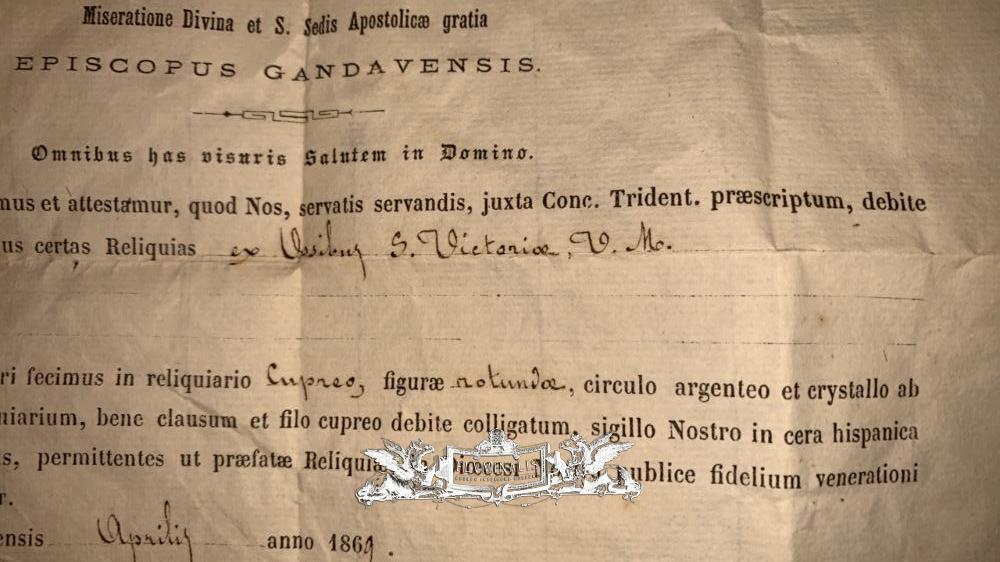 Miseratione Divina et S. Sedis Apostolicæ gratia
EPISCOPUS GANDAVENSIS.
Omnibus has visuris Salutem in Domino.
mus et attestamur, quod Nos, servatis servandis, juxta Conc. Trident. præscriptum, debite
us certas Reliquias ex Ossibus S. Victoriæ, V. M.
ri fecimus in reliquiario Cupreo, figuræ rotundæ, circulo argenteo et crystallo ab
uiarium, bene clausum et filo cupreo debite colligatum, sigillo Nostro in cera hispanica
s, permittentes ut præfatæ Reliquiæ Diœcesi publice fidelium venerationi
r.
ensis Aprilis anno 1869.